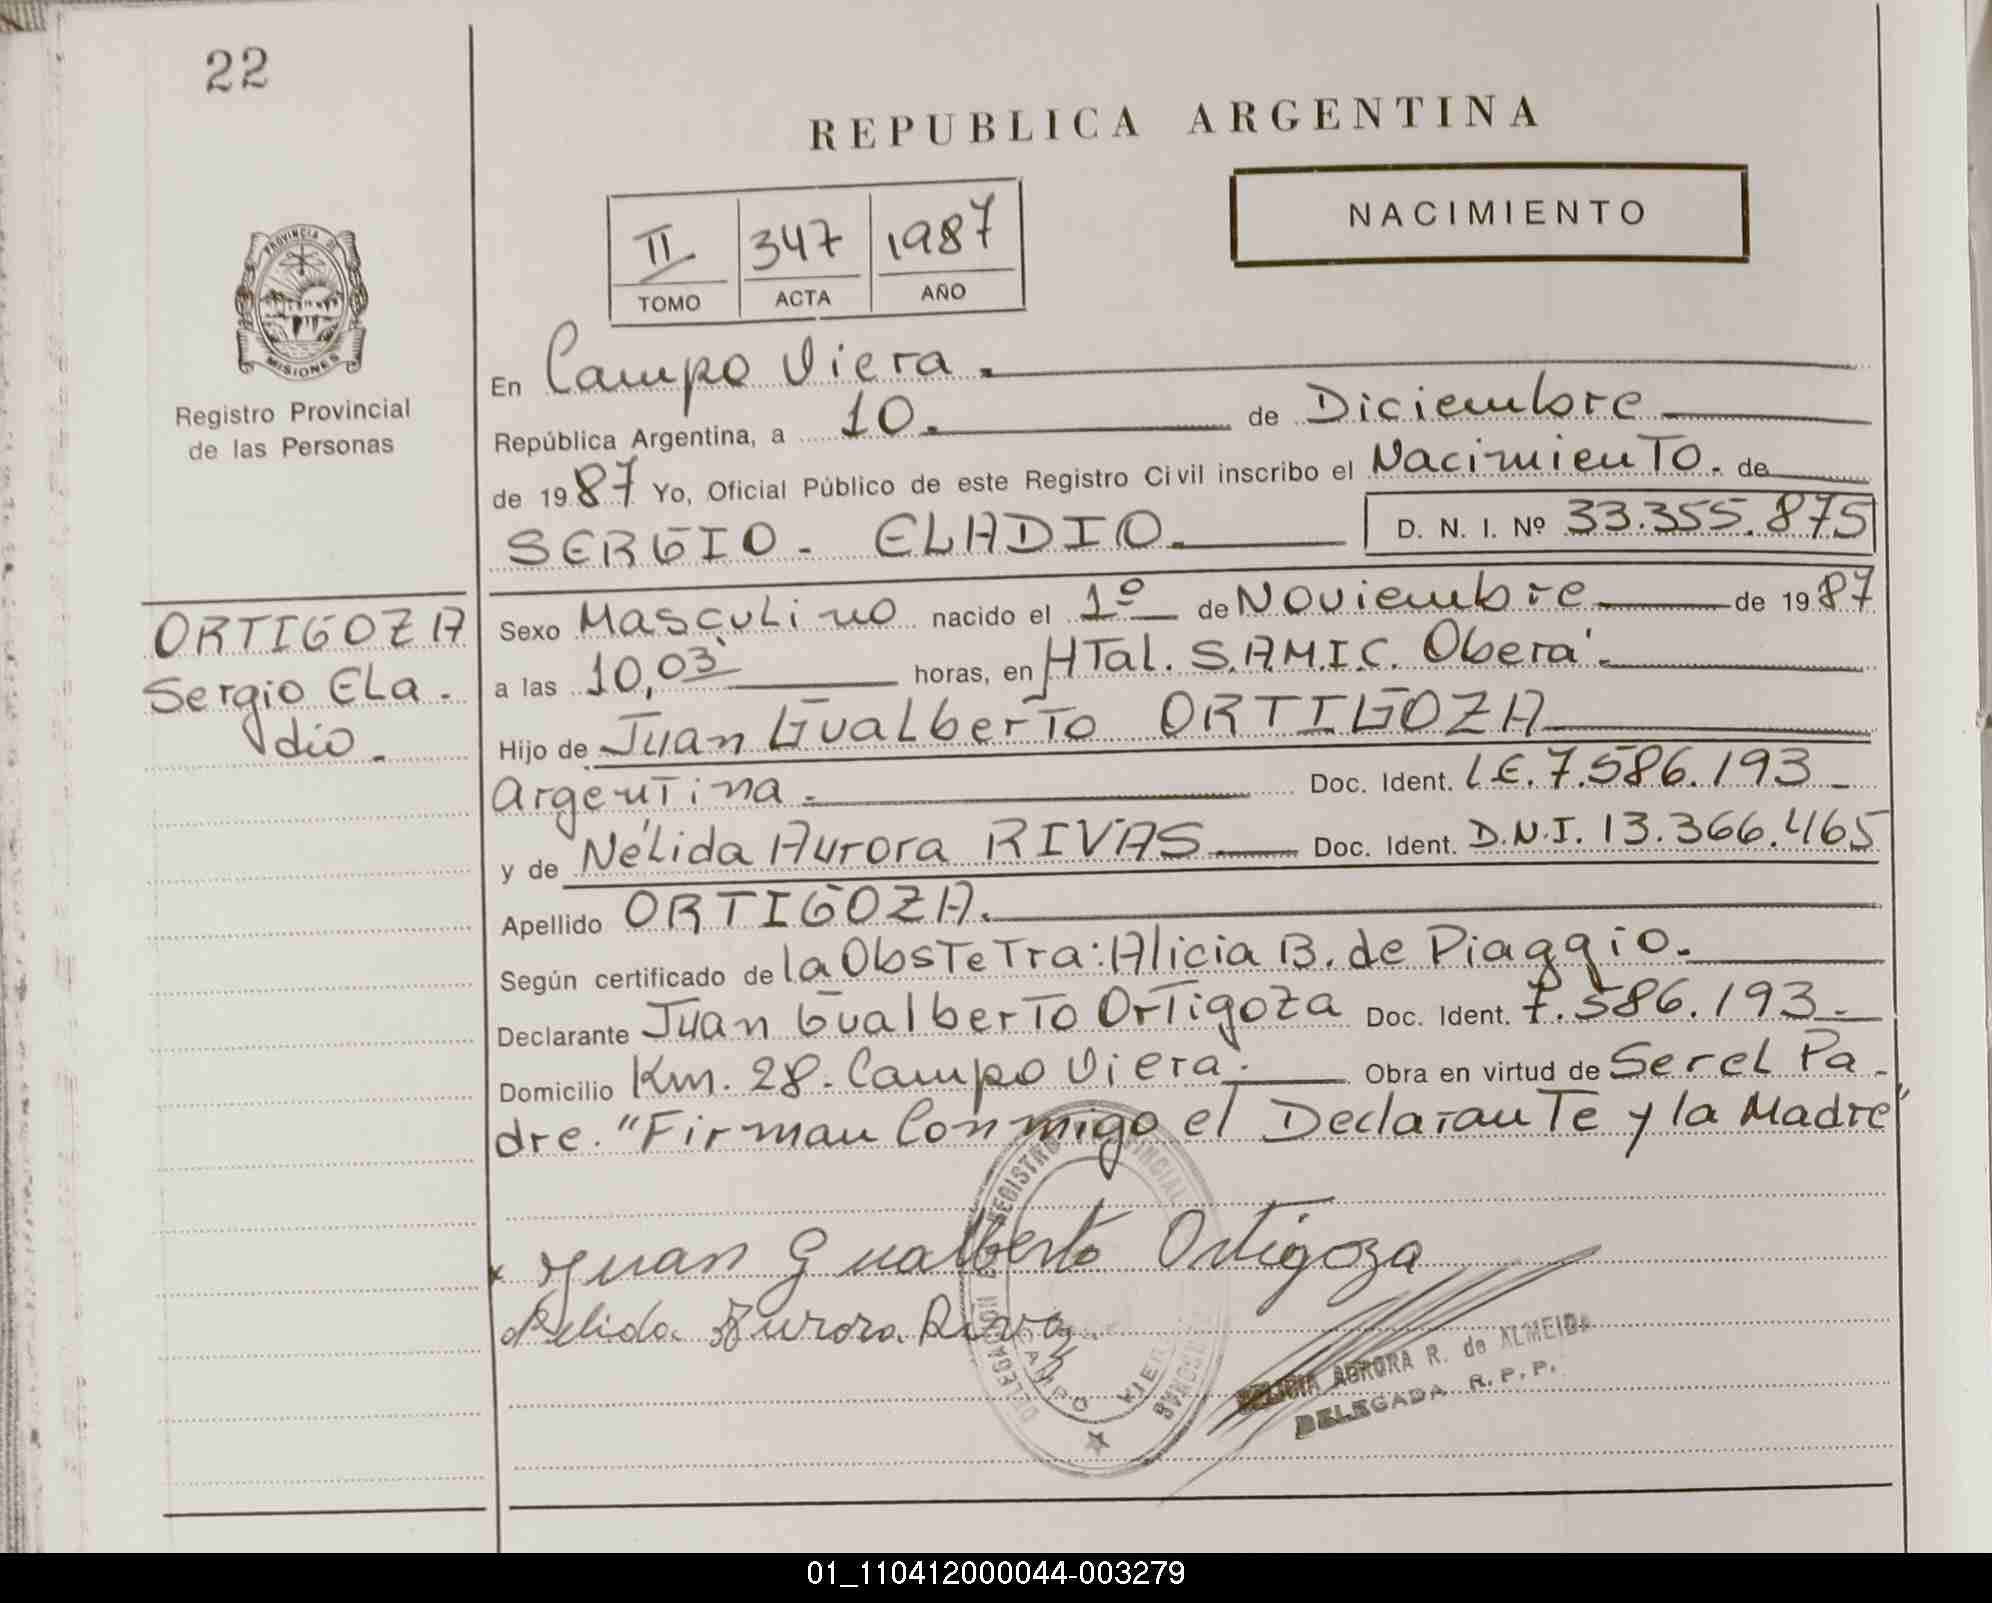 22
REPUBLICA ARGENTINA
NACIMIENTO
II 347 1987
TOMO ACTA AÑO
PROVINCIA DE
MISIONES
Registro Provincial
de las Personas
En Campo Viera.
República Argentina, a 10. de Diciembre
de 1987 Yo, Oficial Público de este Registro Civil inscribo el Nacimiento. de
SERGIO. ELADIO. D. N. I. Nº 33.355.875
ORTIGOZA
Sergio Ela.
dio.
Sexo Masculino nacido el 1º de Noviembre de 1987
a las 10,03 horas, en HTal. S.A.M.I.C. Oberá.
Hijo de Juan Gualberto ORTIGOZA
Argentina. Doc. Ident. L.E. 7.586.193
y de Nélida Aurora RIVAS Doc. Ident. D.N.I. 13.366.465
Apellido ORTIGOZA.
Según certificado de la Obstetra: Alicia B. de Piaggio.
Declarante Juan Gualberto Ortigoza Doc. Ident. 7.586.193.
Domicilio Km. 28. Campo Viera. Obra en virtud de Ser el Pa-
dre. "Firman Conmigo el Declarante y la Madre"
Juan Gualberto Ortigoza
Nelida Aurora Rivas
REGISTRO PROVINCIAL
DELEGACION
CAMPO VIERA
AURORA R. de ALMEIDA
DELEGADA R. P. P.
01_110412000044-003279